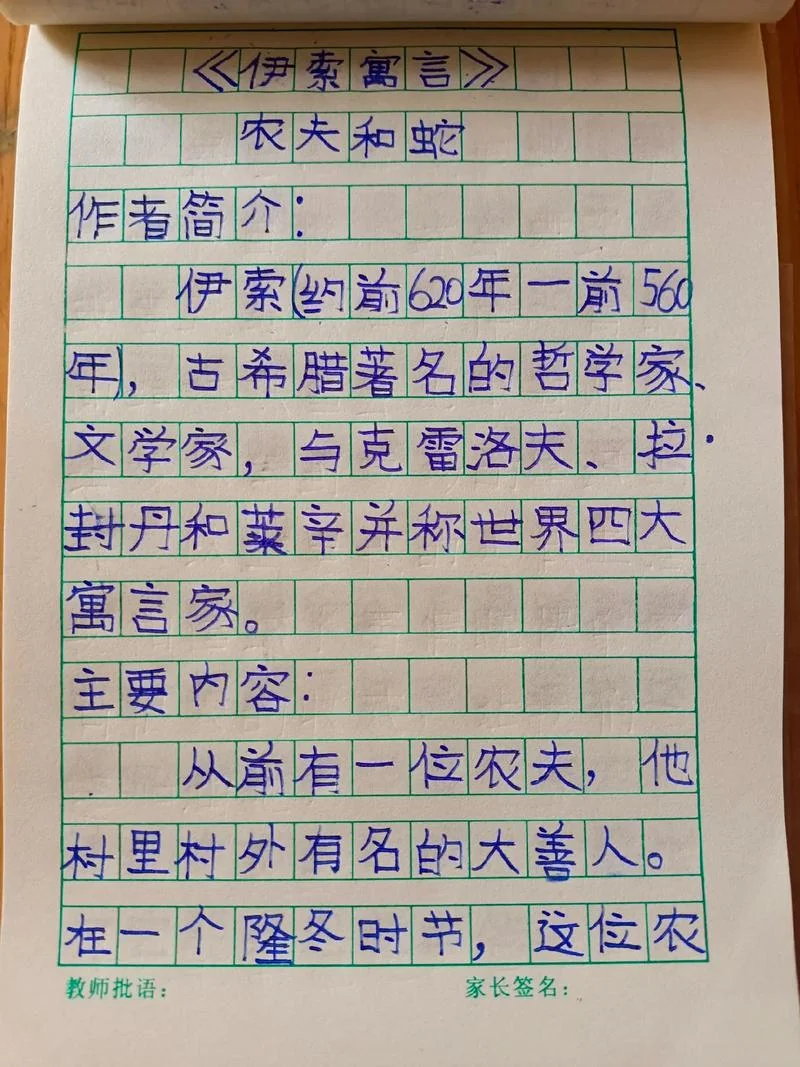 《伊索寓言》
农夫和蛇
作者简介：
伊索(约前620年一前560
年)，古希腊著名的哲学家、
文学家，与克雷洛夫、拉·
封丹和莱辛并称世界四大
寓言家。
主要内容：
从前有一位农夫，他
村里村外有名的大善人。
在一个隆冬时节，这位农
教师批语： 家长签名：